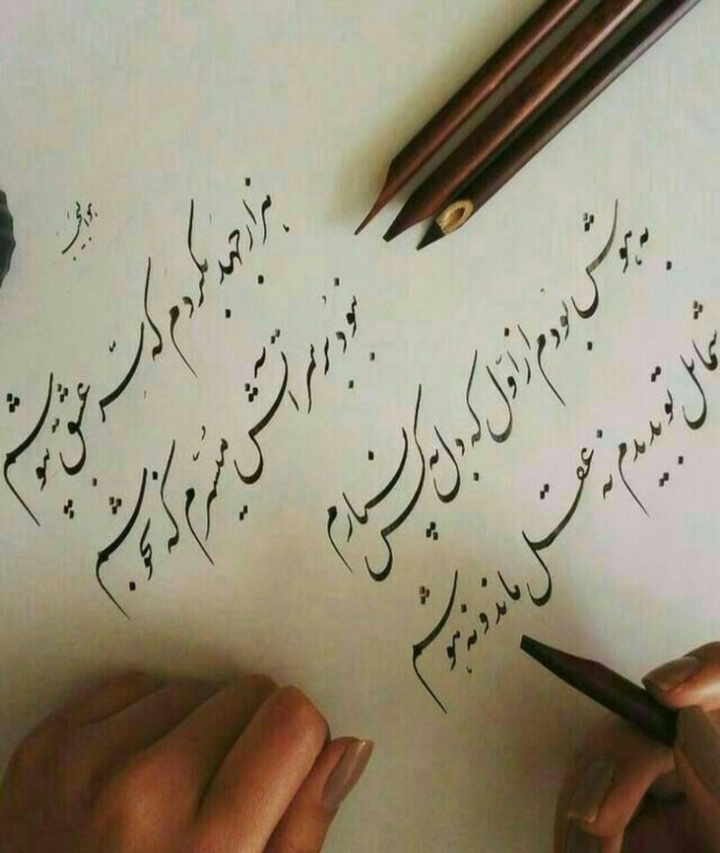 هزار جهد بکردم که سرّ عشق بپوشم
نبود بر سر آتش میسّرم که نجوشم
به هوش بودم از اوّل که دل به کس نسپارم
شمایل تو بدیدم نه عقل ماند و نه هوشم